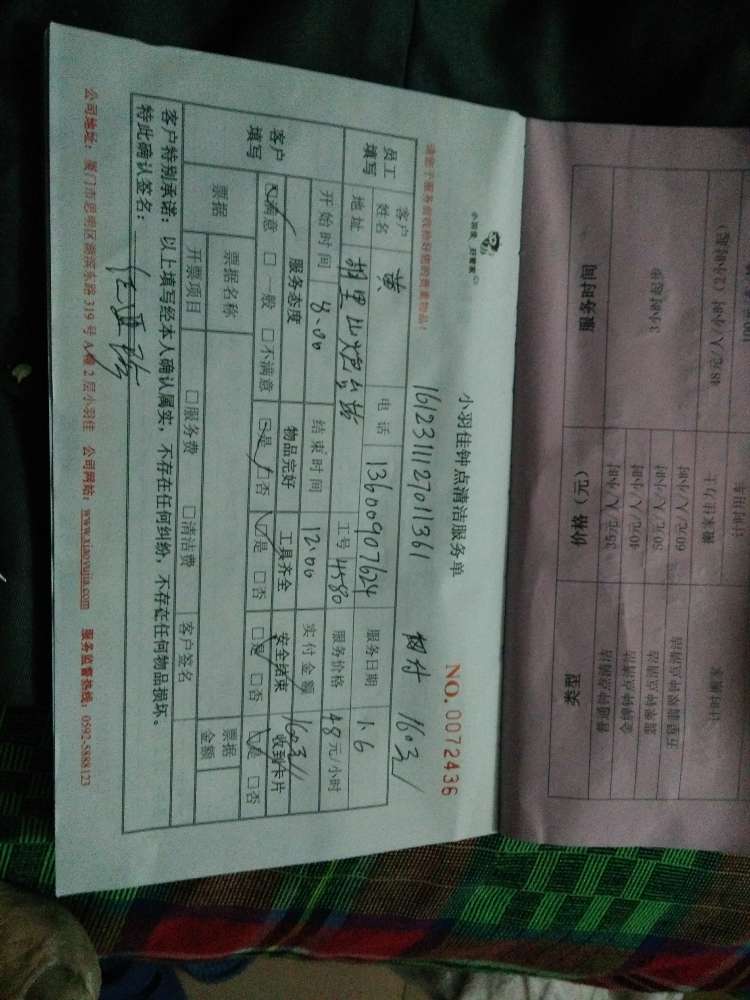 小羽佳 好管家
小羽佳钟点清洁服务单
NO. 0072436
161231112701361
1603
请您于服务前收捡好您的贵重物品！
员工填写
客户姓名 黄 电话 13600907624 服务日期 1.6
地址 胡里山炮台站 工号 4580 服务价格 48元/小时
开始时间 8.00 结束时间 12.00 实付金额 1603
客户填写
服务态度 物品完好 工具齐全 安全结束 收到卡片
☑满意 □一般 □不满意 ☑是 □否 ☑是 □否 ☑是 □否 ☑是 □否
票据 票据名称 票据金额
开票项目 □服务费 □清洁费 客户签名
客户特别承诺：以上填写经本人确认属实，不存在任何纠纷，不存在任何物品损坏。
特此确认签名：
公司地址：厦门市思明区湖滨东路319号A幢2层小羽佳 公司网站：www.xiaoyujia.com 服务监督热线：0592-5888123
类型 价格（元） 服务时间
普通钟点清洁 35元/人/小时 3小时起步
金牌钟点清洁 40元/人/小时
翡翠钟点清洁 50元/人/小时
五星翡翠钟点清洁 60元/人/小时
计时搬家 搬家壮力士 48元/人/小时（2小时起）
计时用车